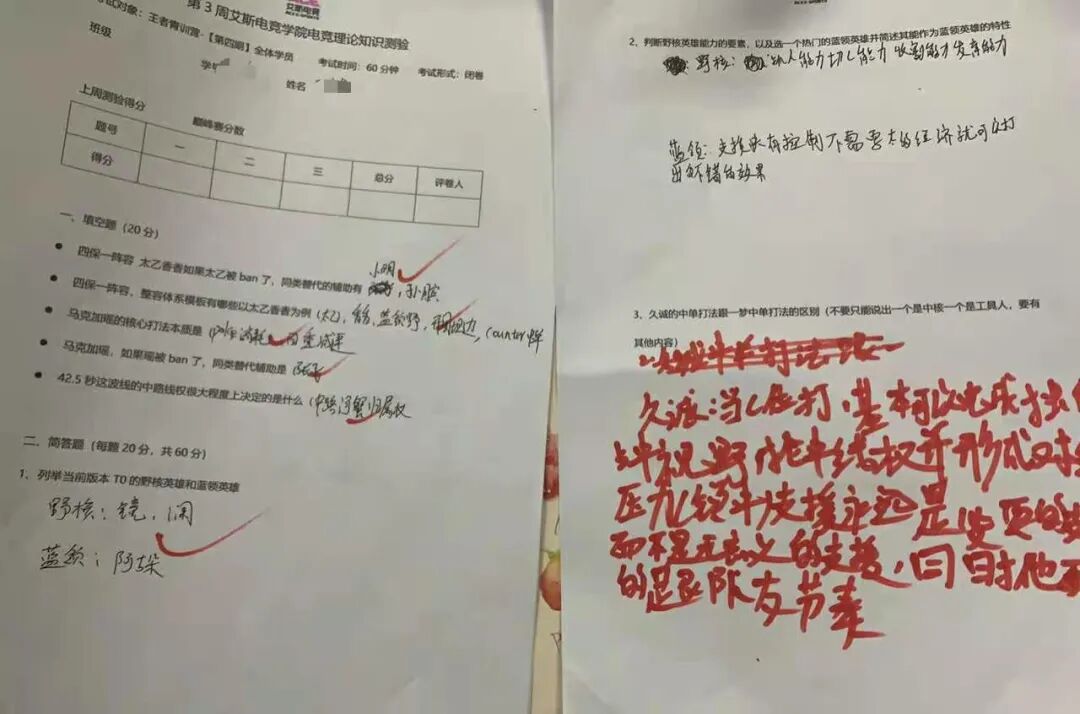 艾斯电竞
第3周艾斯电竞学院电竞理论知识测验
考试对象：王者青训营-【第四期】全体学员 考试时间：60分钟 考试形式：闭卷
班级
学
姓名
上周测验得分 巅峰赛分数
题号 一 二 三 总分 评卷人
得分
一、填空题（20分）
小明
四保一阵容 太乙香香如果太乙被ban了，同类替代的辅助有 ，孙膑
四保一阵容，整容体系模板有哪些以太乙香香为例（太乙，香香，蓝领野，边，counter
马克加瑶的核心打法本质是
马克加瑶，如果瑶被ban了，同类替代辅助是
42.5秒这波线的中路线权很大程度上决定的是什么（中路河蟹归属权
二、简答题（每题20分，共60分）
1、列举当前版本T0的野核英雄和蓝领英雄
野核：镜，澜
蓝领：阿古朵
2、判断野核英雄能力的要素，以及选一个热门的蓝领英雄并简述其能作为蓝领英雄的特性
野核： 能力切C能力 收割能力发育能力
蓝领：支援快有控制不需要太的经济就可以打
出不错的效果
3、久诚的中单打法跟一梦中单打法的区别（不要只能说出一个是中核一个是工具人，要有
其他内容）
久诚：当C位打，基本可以完成
线权并形成对
压力 支援永远是
而不是无意义的支援，同时他
的是 队友节奏